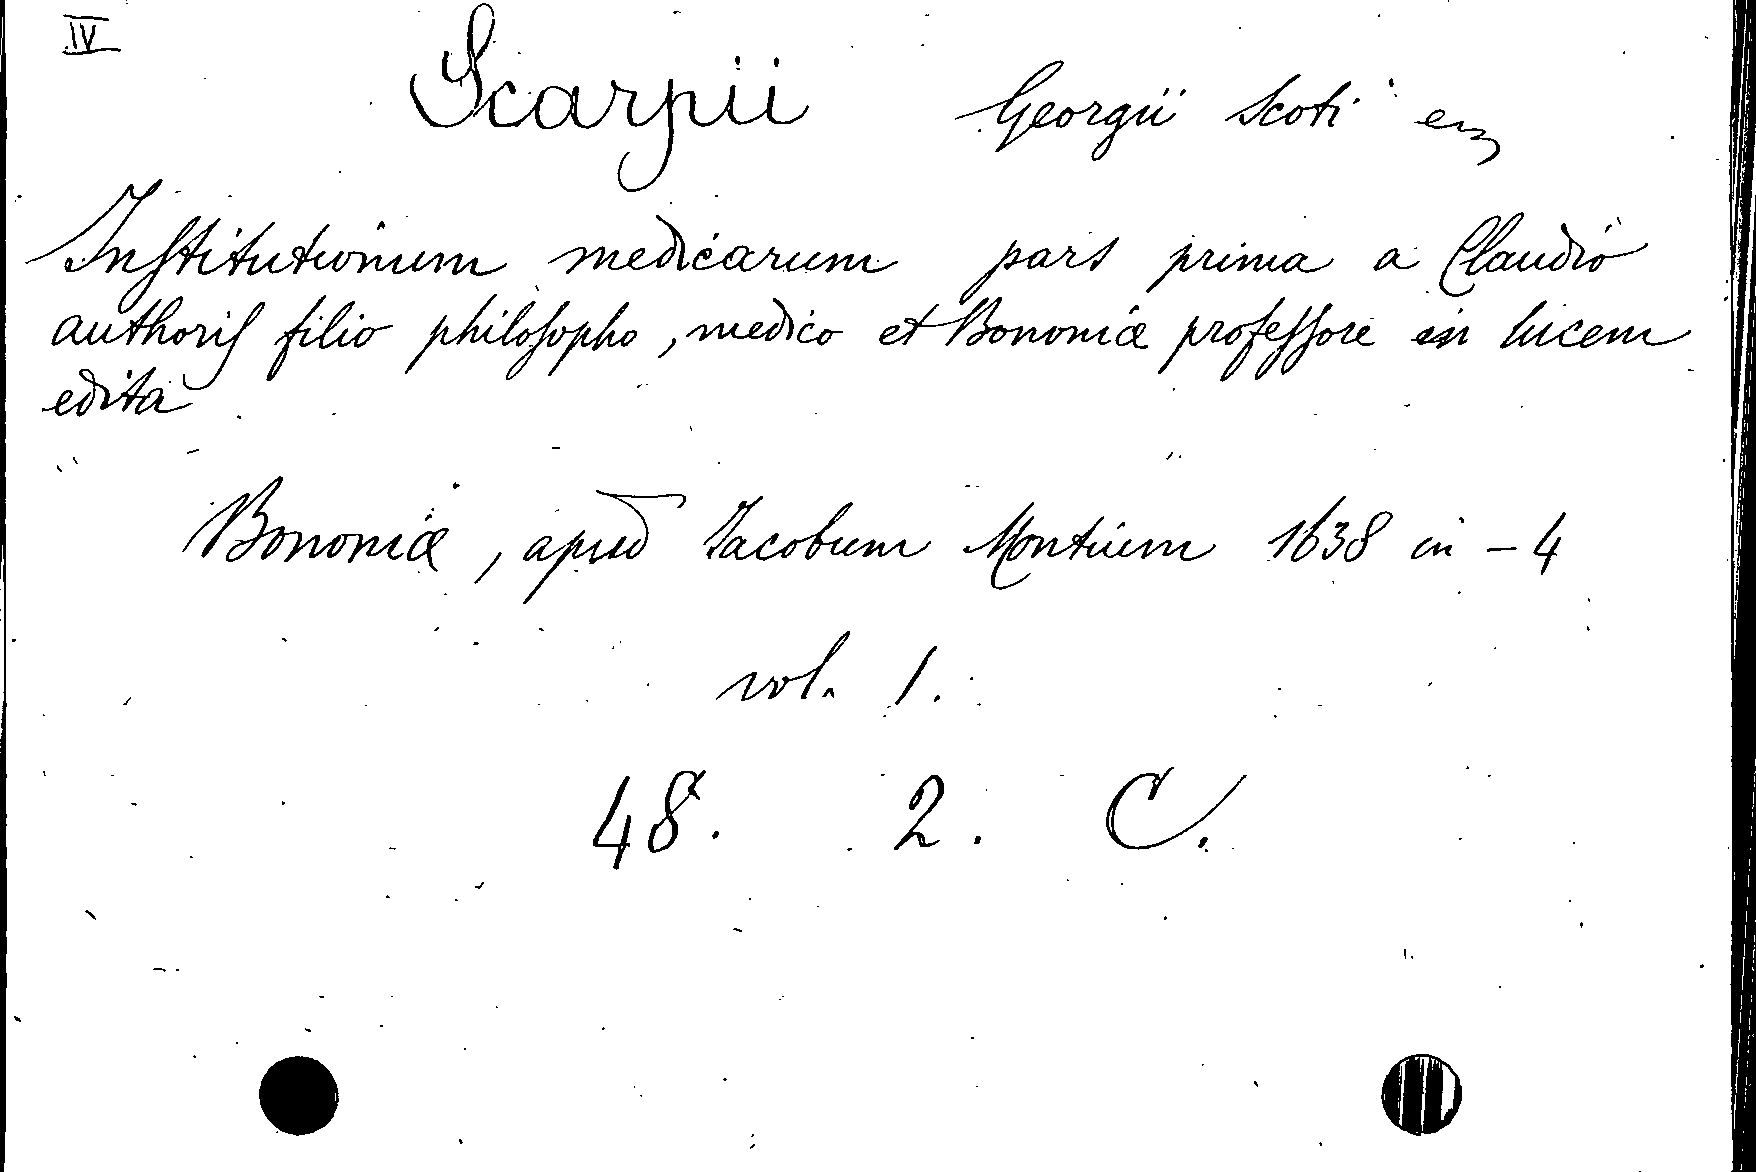 IV
Scarpii Georgii Scoti
Institutionum medicarum pars prima a Claudio
authoris filio philosopho, medico et Bononiæ professore in lucem
edita
Bononiæ, apud Jacobum Montium 1638 in-4
vol. 1.
48. 2. C.